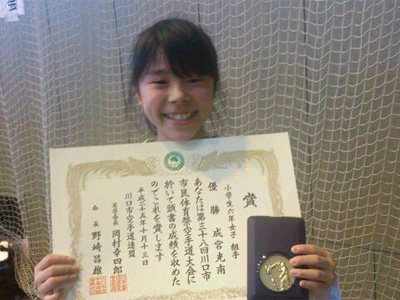 賞
小学生六年女子 組手
優勝 成宮光南
あなたは第三十八回川口市
市民体育祭空手道大会に
於いて頭書の成績を収めた
のでこれを賞します
平成二十五年十月十三日
川口市空手道連盟
名誉会長 岡村幸四郎
会長 野﨑昌雄